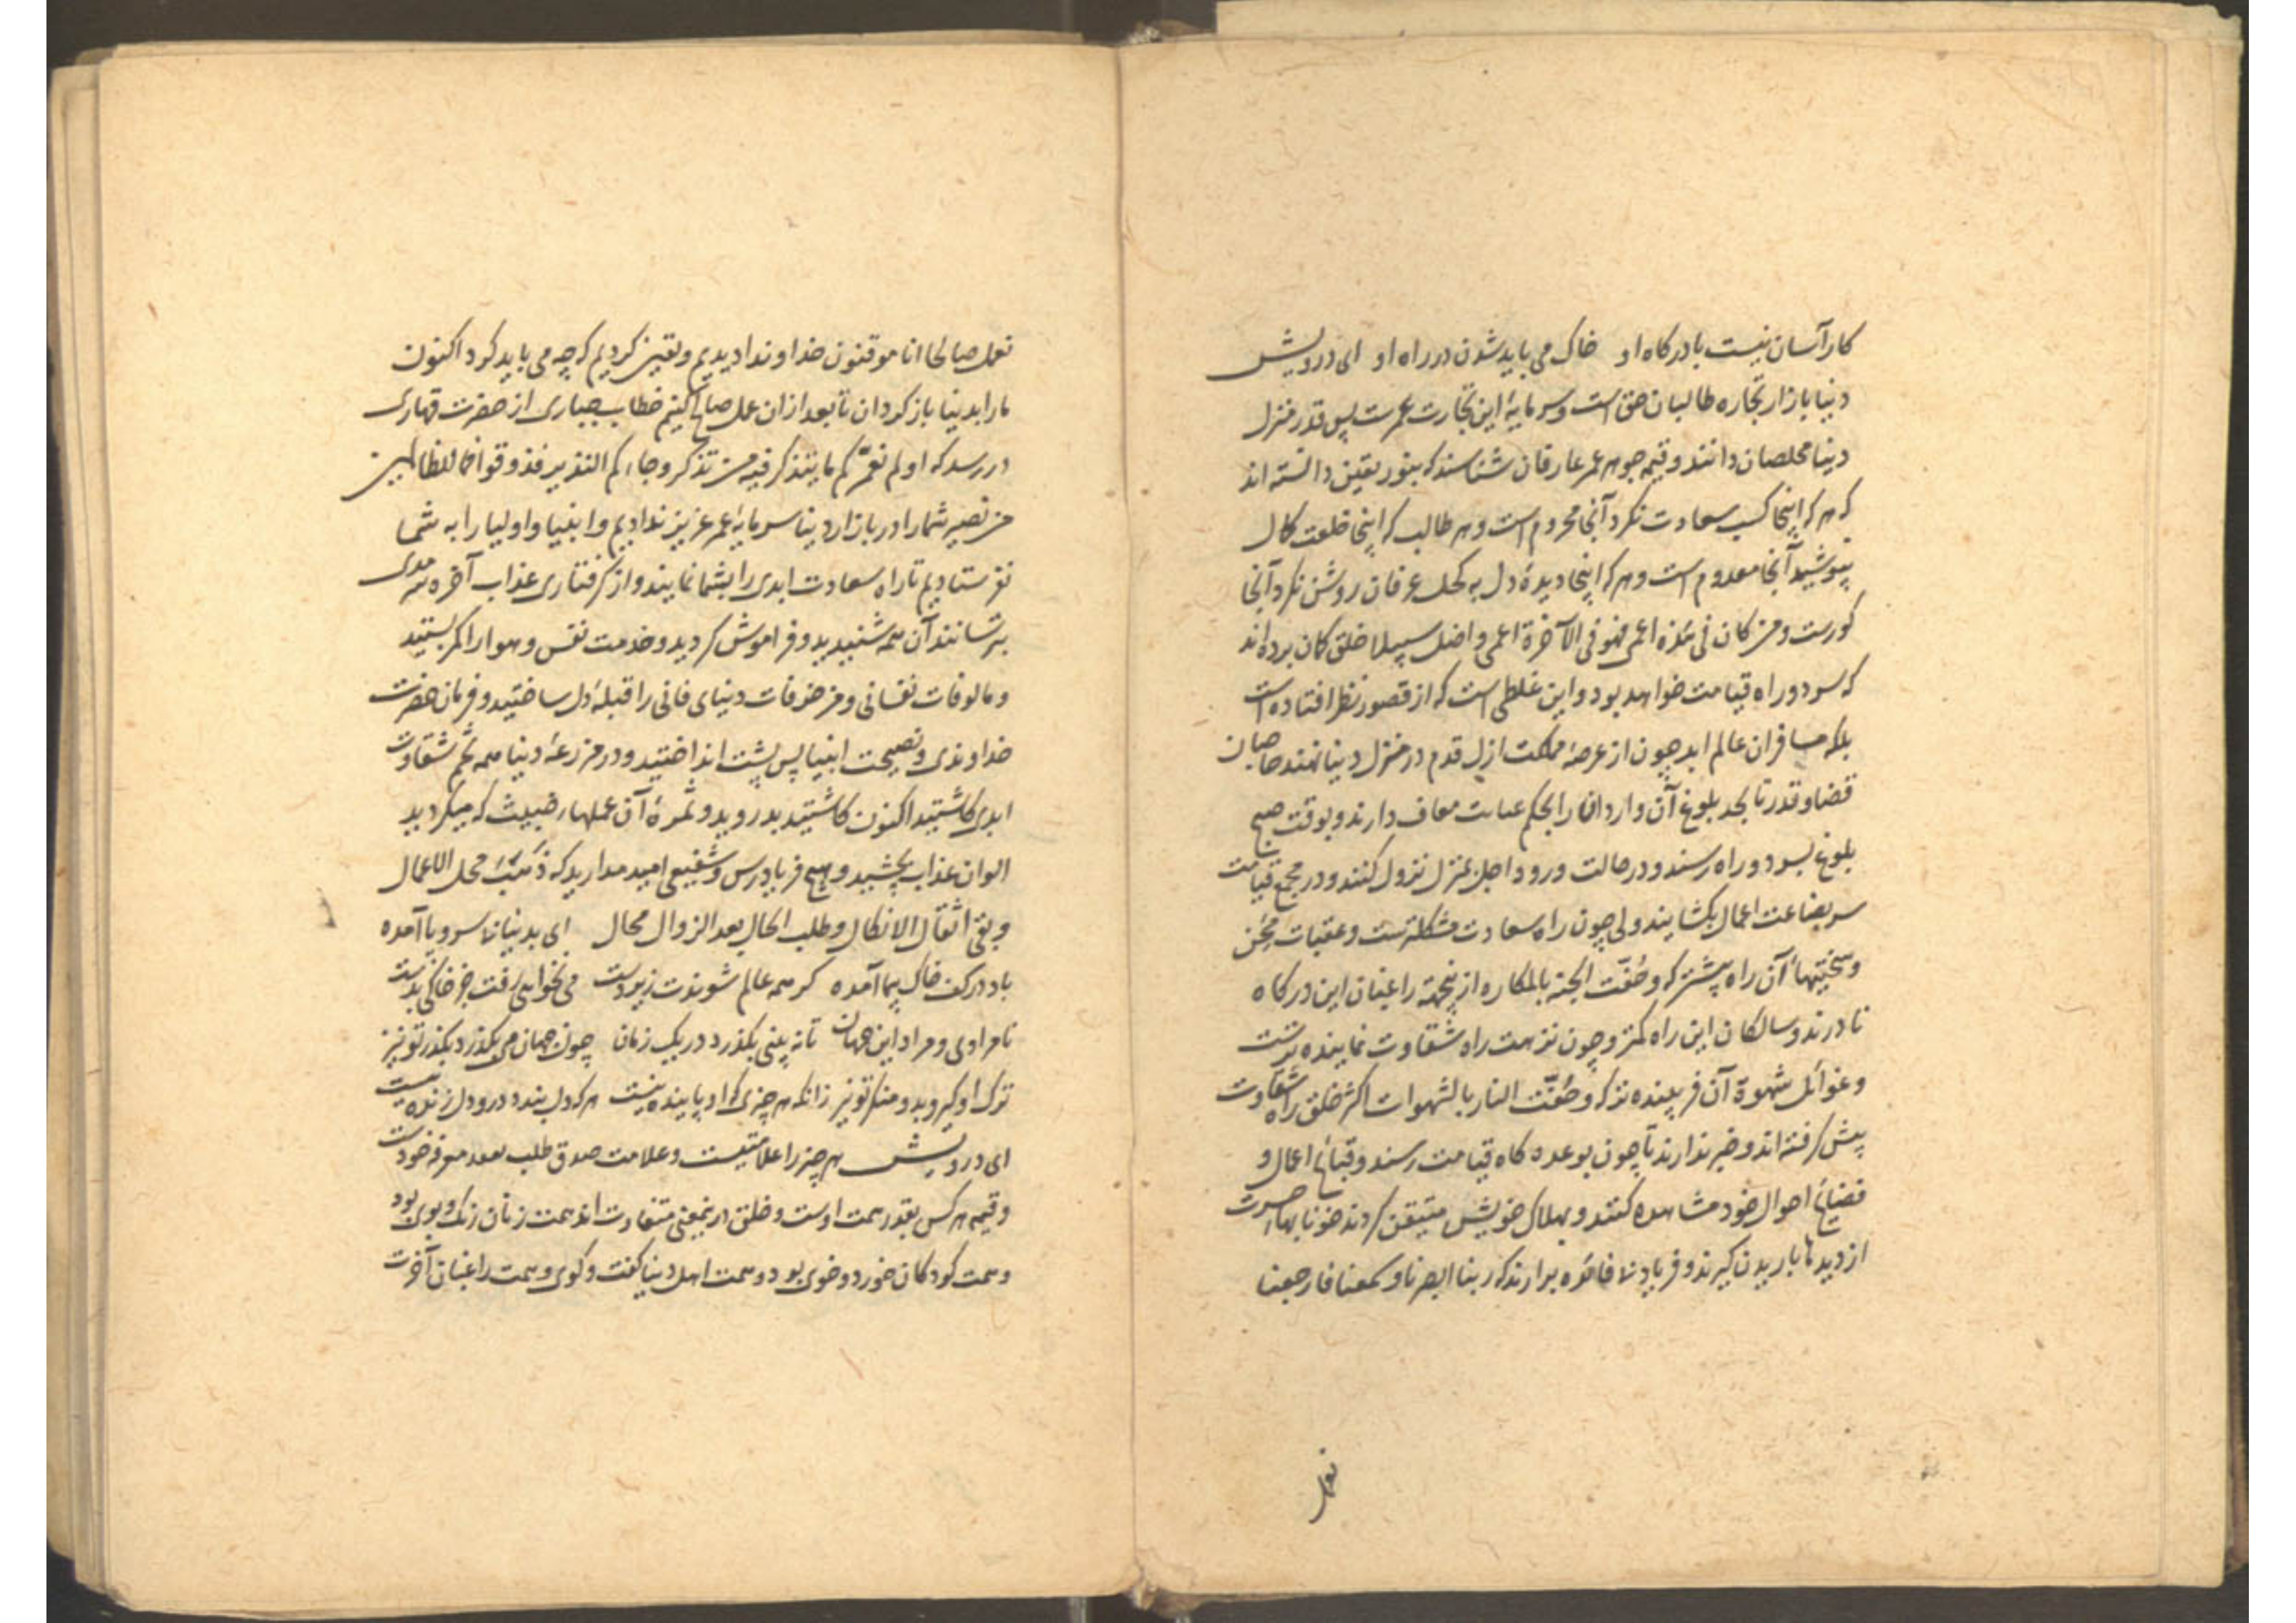 کار آسان نیست با درکاه او خاک می باید شدن در راه او ای درویش
دنیا بازار تجاره طالبان حق است و سرمایهٔ این تجارت عمرست پس قدر منزل
دنیا مخلصان دانند و قیمه جوهر عمر عارفان شناسند که بنور یقین دانسته اند
که هر که اینجا کسب سعادت نکرد آنجا محروم است و هر طالب که اینجا خلعت کمال
نپوشید آنجا معدوم است و هر که اینجا دیدهٔ دل به کحل عرفان روشن نکرد آنجا
کورست و من کان فی هذه اعمی فهو فی الآخرة اعمی و اضل سبیلا خلق کمان برده اند
که سود و راه قیامت خواهد بود و این غلطی است که از قصور نظر افتاده است
بلکه مسافران عالم ابد چون از عرصهٔ مملکت ازل قدم در منزل دنیا نهند صاحبان
قضا و قدر تا بحد بلوغ آن واردان را بحکم عنایت معاف دارند و بوقت صبح
بلوغ بسود و راه رسند و در حالت ورود اجل بمنزل نزول کنند و در مجمع قیامت
سر بضاعت اعمال بکشایند ولی چون راه سعادت مشکلترست و عقبات محن
و سختیهاء آن راه بیشتر که و حُفّت الجنة بالمکاره ازینجهته راغبان این درکاه
نادرند و سالکان این راه کمتر و چون نزهت راه شقاوت نماینده ترست
و غوائل شهوة آن فریبنده تر که و حُفّت النار بالشهوات اکثر خلق راه شقاوت
پیش کرفته اند و خبر ندارند تا چون بوعده کاه قیامت رسند و قبایح اعمال و
فضایح احوال خود مشاهده کنند و بهلاک خویش متیقن کردند خونابهاء حسرت
از دیدها باریدن کیرند و فریاد بی فائده برارند که ربنا ابصرنا و سمعنا فارجعنا
نعمل
نعمل صالحا انا موقنون خداوندا دیدیم و یقین کردیم که چه می باید کرد اکنون
ما را بدنیا باز کردان تا بعد ازان عمل صالح کنیم خطاب جباری از حضرت قهاری
در رسد که اولم نعمّرکم ما یتذکر فیه من تذکر و جاءکم النذیر فذوقوا فما للظالمین
من نصیر شما را در بازار دنیا سرمایهٔ عمر عزیز ندادیم و انبیا و اولیا را به شما
نفرستادیم تا راه سعادت ابدی را بشما نمایند و از کرفتاری عذاب آخره سرمدی
بترسانند آن همه شنیدید و فراموش کردید و خدمت نفس و هوا را کمر بستید
و مالوفات نفسانی و مزخرفات دنیای فانی را قبلهٔ دل ساختید و فرمان حضرت
خداوندی و نصیحت انبیا پس پشت انداختید و در مزرعهٔ دنیا همه تخم شقاوت
ابدی کاشتید اکنون کاشتید بدروید و ثمرهٔ آن عملهاء خبیث که میکردید
الوان عذاب بچشید و هیچ فریادرس و شفیعی امید مدارید که ذَهَبَت محل الاعمال
و بقی اثقال الانکال و طلب الحال بعد الزوال محال ای بدنیا بی سر و پا آمده
باد در کف خاک پیما آمده کر همه عالم شوندت زیردست می نخواهی رفت جز خاکی بدست
نامرادی و مراد این جهان تا نه بینی بکذرد در یک زمان چون جهان می بکذرد بکذر تو نیز
ترک او کیر و بدو منکر تو نیز زانکه هر چیزی که او پاینده نیست هر که دل بندد درو دل زنده نیست
ای درویش هر چیز را علامتیست و علامت صدق طلب بعد معرفه خودست
و قیمه هر کس بقدر همت اوست و خلق درینمعنی متفاوت اند همت زنان رنک و بوی بود
و همت کودکان خورد و خوی بود و همت اهل دنیا کفت و کوی و همت راغبان آخرت